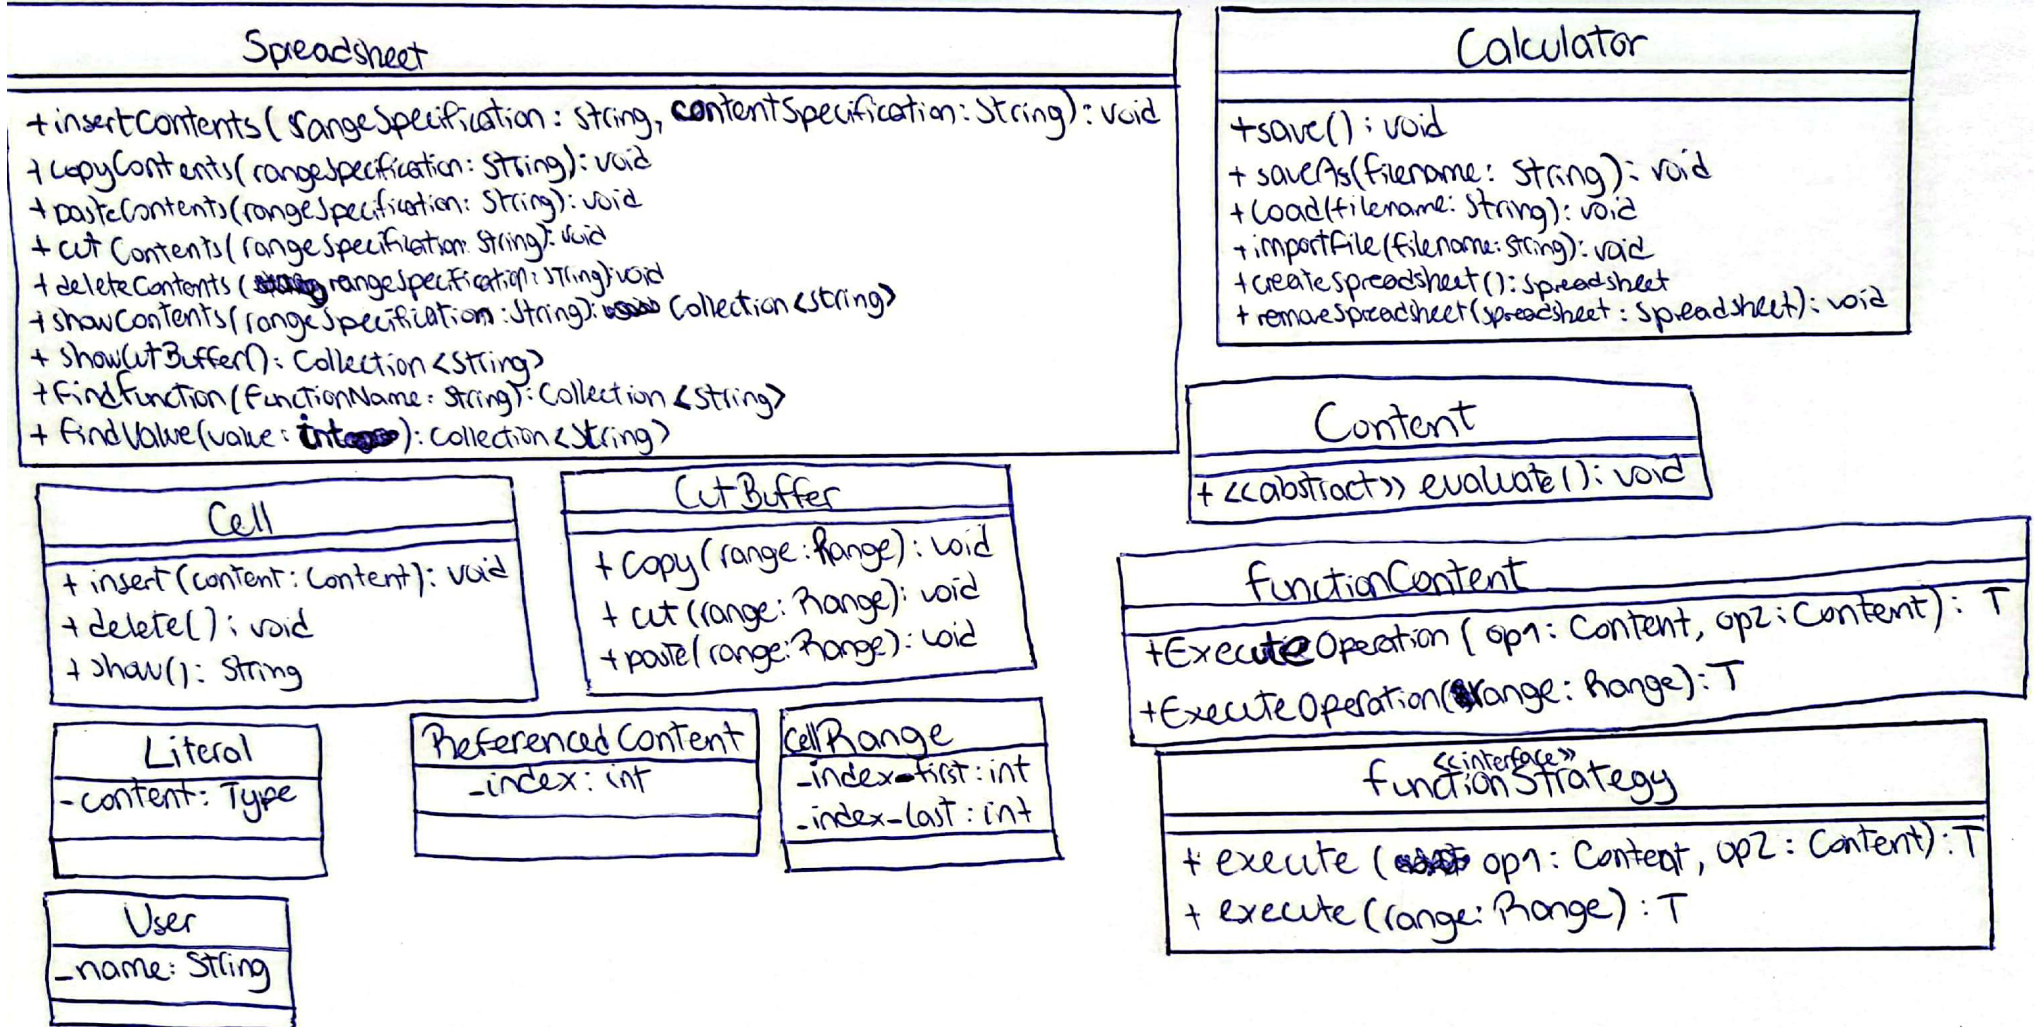 Spreadsheet
+insertContents(rangeSpecification: String, contentSpecification: String): void
+copyContents(rangeSpecification: String): void
+pasteContents(rangeSpecification: String): void
+cutContents(rangeSpecification: String): void
+deleteContents(rangeSpecification: String): void
+showContents(rangeSpecification: String): Collection<String>
+showCutBuffer(): Collection<String>
+findFunction(functionName: String): Collection<String>
+findValue(value: int): Collection<String>
Calculator
+save(): void
+saveAs(filename: String): void
+load(filename: String): void
+importFile(filename: String): void
+createSpreadsheet(): Spreadsheet
+removeSpreadsheet(spreadsheet: Spreadsheet): void
Content
+<<abstract>> evaluate(): void
Cell
+insert(content: Content): void
+delete(): void
+show(): String
CutBuffer
+copy(range: Range): void
+cut(range: Range): void
+paste(range: Range): void
functionContent
+ExecuteOperation(op1: Content, op2: Content): T
+ExecuteOperation(range: Range): T
Literal
-content: Type
Referenced Content
-index: int
CellRange
-index-first: int
-index-last: int
<<interface>>
functionStrategy
+execute(op1: Content, op2: Content): T
+execute(range: Range): T
User
-name: String